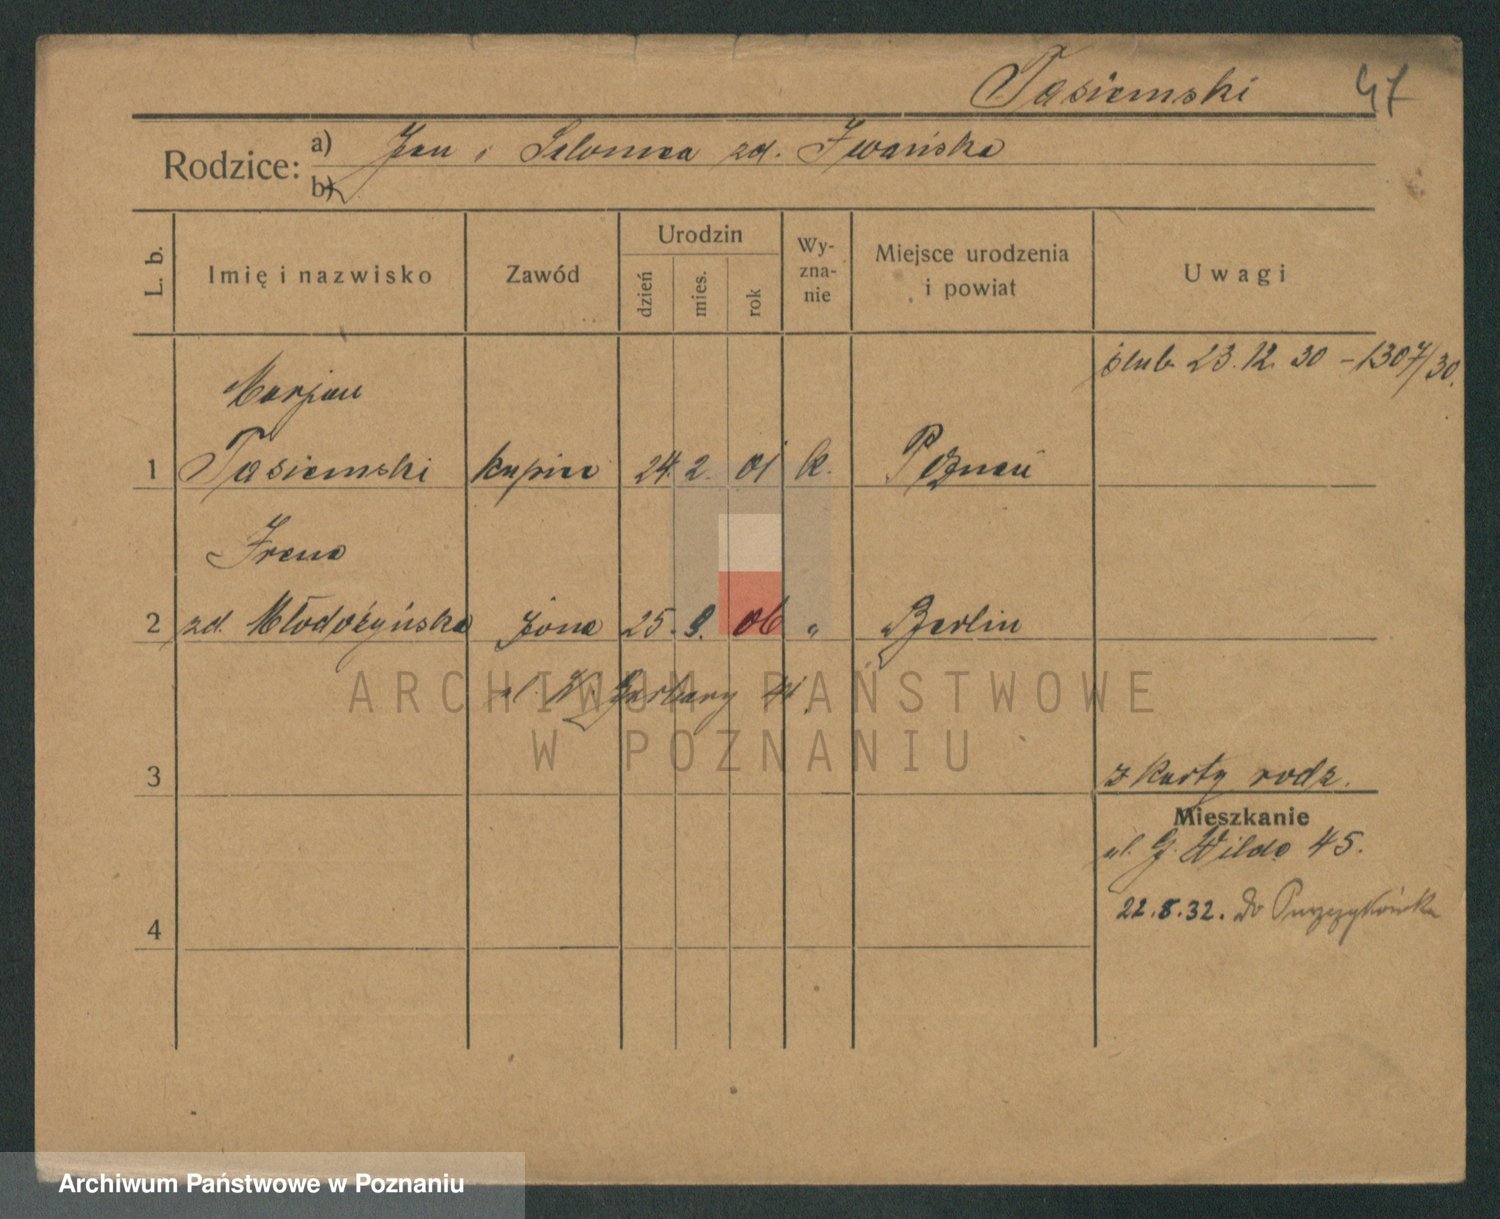 Tasiemski 47
Rodzice: a) Jan i Salomea zd. Iwańska
b)
L. b. Imię i nazwisko Zawód Urodzin dzień mies. rok Wy-zna-nie Miejsce urodzenia i powiat Uwagi
ślub 23.12.30 – 1307/30.
Marjan
1 Tasiemski kupiec 24. 2. 01 k. Poznań
Irena
2 zd. Młodożyńska żona 25. 9. 06 " Berlin
ul. W. Garbary 41.
3 z karty rodz.
Mieszkanie
ul. G. Wilda 45.
22.8.32. do
4
ARCHIWUM PAŃSTWOWE
W POZNANIU
Archiwum Państwowe w Poznaniu